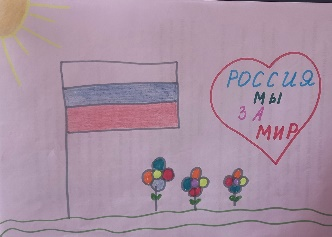 РОССИЯ
МЫ
ЗА
МИР